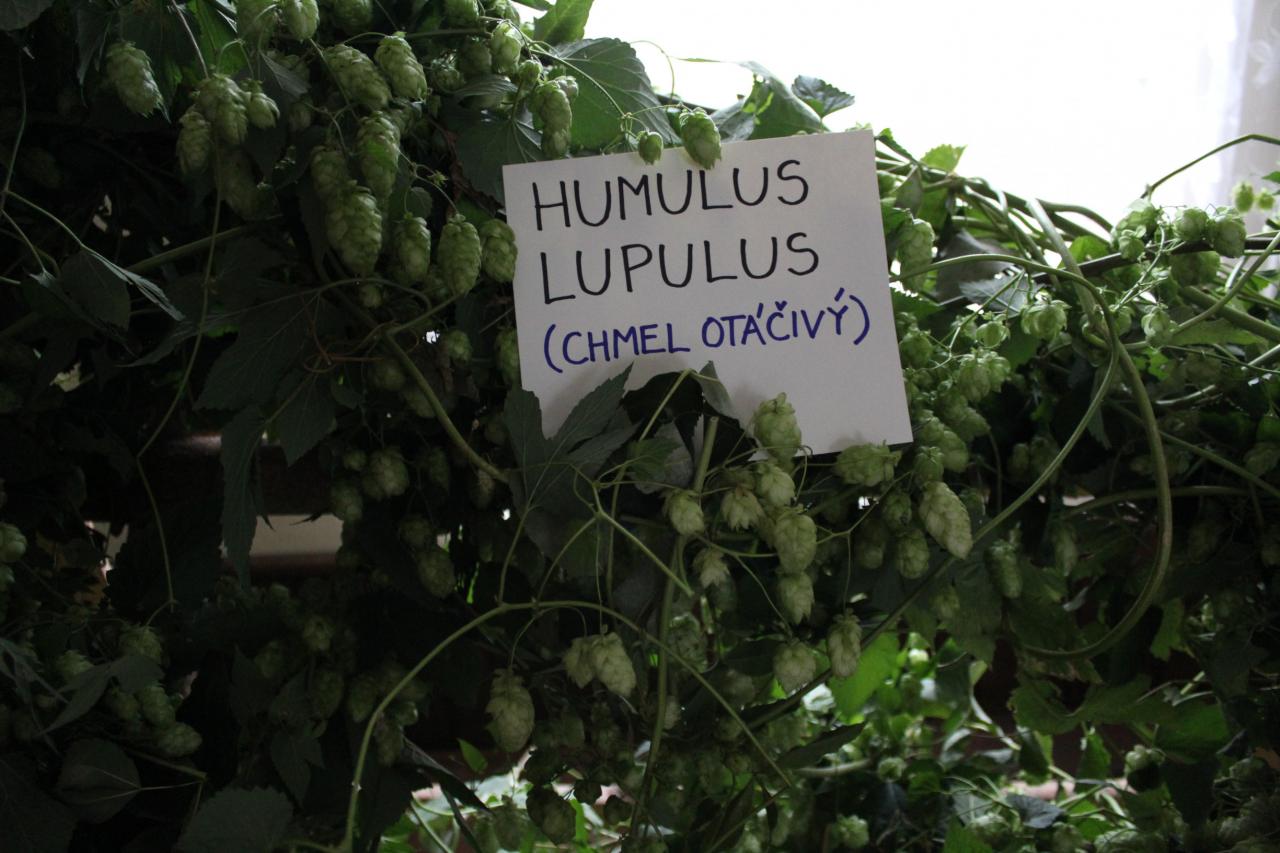 HUMULUS
LUPULUS
(CHMEL OTÁČIVÝ)